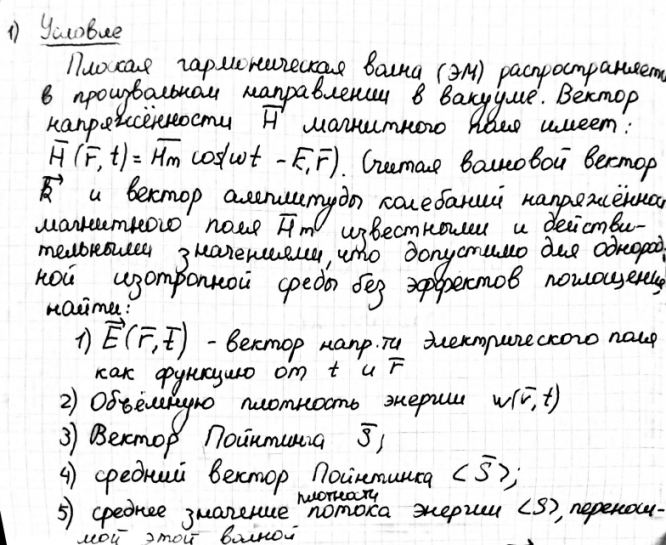 1) Условие
Плоская гармоническая волна (ЭМ) распространяется
в произвольном направлении в вакууме. Вектор
напряжённости H̅ магнитного поля имеет:
H̅(r̅, t) = H̅m cos(ωt - k̅,r̅). Считая волновой вектор
k⃗ и вектор амплитуды колебаний напряжённос
магнитного поля H̅m известными и действи-
тельными значениями, что допустимо для однород-
ной изотропной среды без эффектов поглощения
найти:
1) E⃗(r̅, t̅) - вектор напр-ти электрического поля
как функцию от t и r̅
2) Объёмную плотность энергии w(r̅, t)
3) Вектор Пойнтинга S̅;
4) средний вектор Пойнтинка <S̅>;
5) среднее значение плотности потока энергии <S>, перенош-
мой этой волной